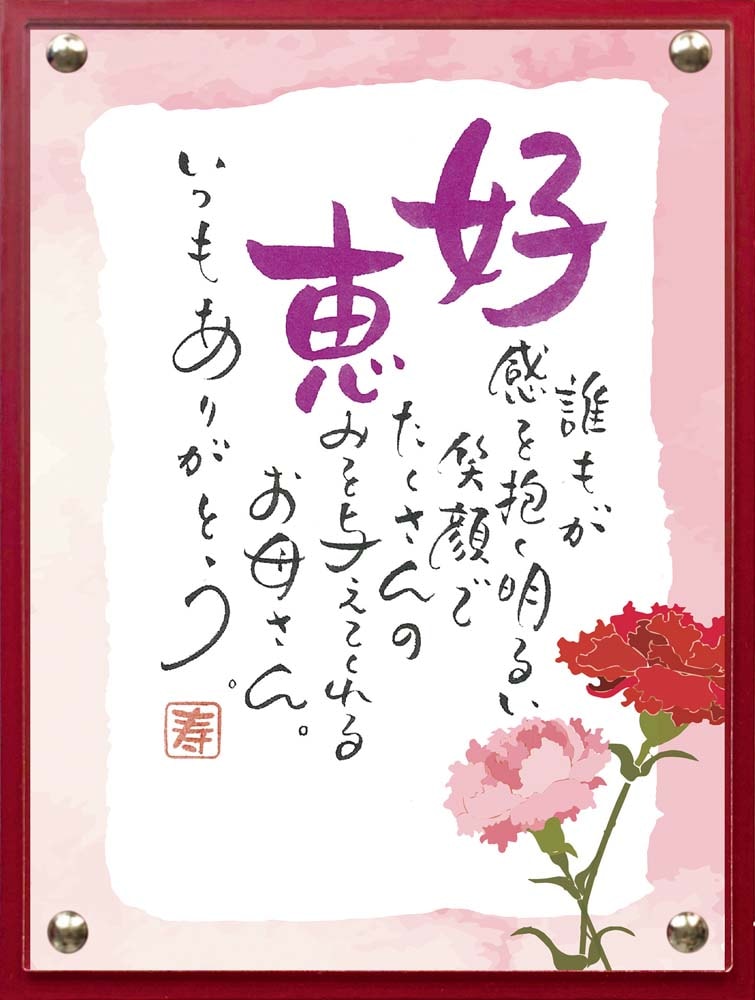 誰もが
好感を抱く明るい
笑顔で
たくさんの
恵みを与えてくれる
お母さん。
いつもありがとう。
寿